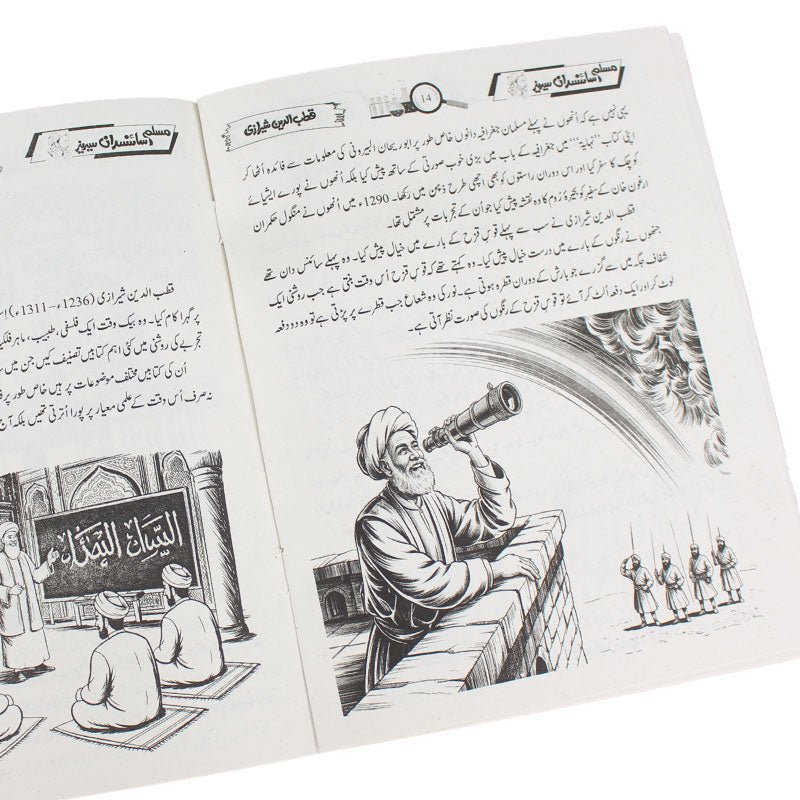 مسلم سائنسدان سیریز
14
قطب الدین شیرازی
یہی نہیں ہے کہ اُنھوں نے پہلے مسلمان جغرافیہ دانوں خاص طور پر ابوریحان البیرونی کی معلومات سے فائدہ اُٹھا کر
اپنی کتاب ’’نہایۃ‘‘ میں جغرافیہ کے باب میں بڑی خوب صورتی کے ساتھ پیش کیا بلکہ اُنھوں نے پورے ایشیائے
کوچک کا سفر کیا اور اس دوران راستوں کو بھی اچھی طرح ذہن میں رکھا۔ 1290ء میں اُنھوں نے منگول حکمران
ارغون خان کے سفیر کو بحیرۂ رُوم کا وہ نقشہ پیش کیا جو اُن کے تجربات پر مشتمل تھا۔
قطب الدین شیرازی نے سب سے پہلے قوسِ قزح کے بارے میں خیال پیش کیا۔ وہ پہلے سائنس دان تھے
جنھوں نے رنگوں کے بارے میں درست خیال پیش کیا۔ وہ کہتے تھے کہ قوسِ قزح اُس وقت بنتی ہے جب روشنی ایک
شفاف جگہ میں سے گزرے جو بارش کے دوران قطرہ ہوتی ہے۔ نور کی وہ شعاع جب قطرے پر پڑتی ہے تو وہ دو دفعہ
لوٹ کر اور ایک دفعہ اُلٹ کر آئے تو قوسِ قزح کے رنگوں کی صورت نظر آتی ہے۔
مسلم سائنسدان سیریز
قطب الدین شیرازی (1236ء–1311ء)
پر گہرا کام کیا۔ وہ بیک وقت ایک فلسفی، طبیب، ماہر
تجربے کی روشنی میں کئی اہم کتابیں تصنیف کیں جن میں
اُن کی کتابیں مختلف موضوعات پر ہیں خاص طور پر
نہ صرف اُس وقت کے علمی معیار پر پورا اُترتی تھیں بلکہ آج